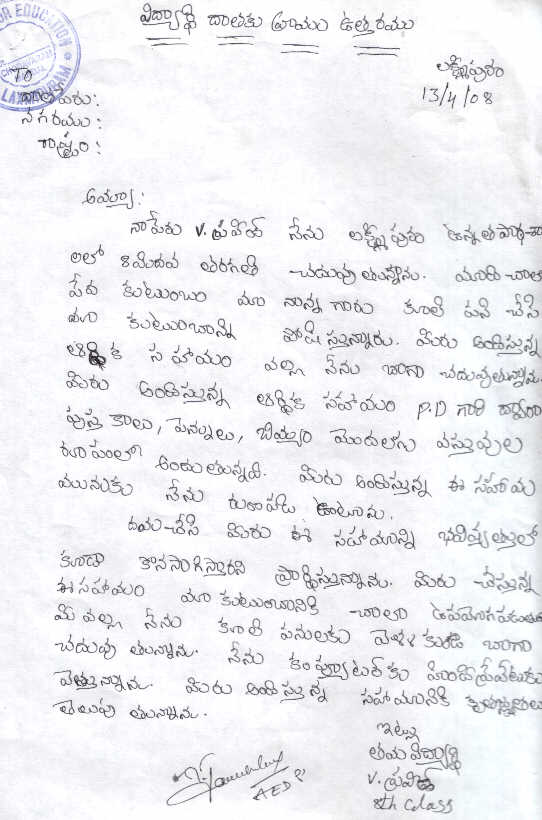 విద్యార్థి దాతకు వ్రాయు ఉత్తరము
OR EDUCATION
LAXMIPURAM
TO
లక్ష్మీపురం
13/4/08
దాత పేరు:
నగరము:
రాష్ట్రం:
అయ్యా:
నా పేరు V. ప్రవీణ్ నేను లక్ష్మీపురం ఉన్నత పాఠశా
లలో 8మిదవ తరగతి చదువుతున్నాను. మాది చాలా
పేద కుటుంబం మా నాన్న గారు కూలి పని చేసి
మా కుటుంబాన్ని పోషిస్తున్నారు. మీరు అందిస్తున్న
ఆర్థిక సహాయం వల్ల నేను బాగా చదువుతున్నాను.
మీరు అందిస్తున్న ఆర్థిక సహాయం P.D గారి ద్వారా
పుస్తకాలు, పెన్నులు, బియ్యం మొదలగు వస్తువుల
రూపంలో అందుతున్నది. మీరు అందిస్తున్న ఈ సహాయ
మునుకు నేను రుణపడి ఉంటాను.
దయచేసి మీరు ఈ సహాయాన్ని భవిష్యత్తులో
కూడా కొనసాగిస్తారని ప్రార్థిస్తున్నాను. మీరు చేస్తున్న
ఈ సహాయం మా కుటుంబానికి చాలా ఉపయోగపడుతుంది
మీ వల్ల నేను కూలి పనులకు వెళ్ళకుండా బాగా
చదువుతున్నాను. నేను కంప్యూటర్‌కు హిందీప్రైవేటుకు
వెళ్తున్నాను. మీరు అందిస్తున్న సహాయానికి కృతజ్ఞతలు
తెలుపుతున్నాను.
ఇట్లు
తమ విద్యార్థి
V. ప్రవీణ్
8th class
AEDP